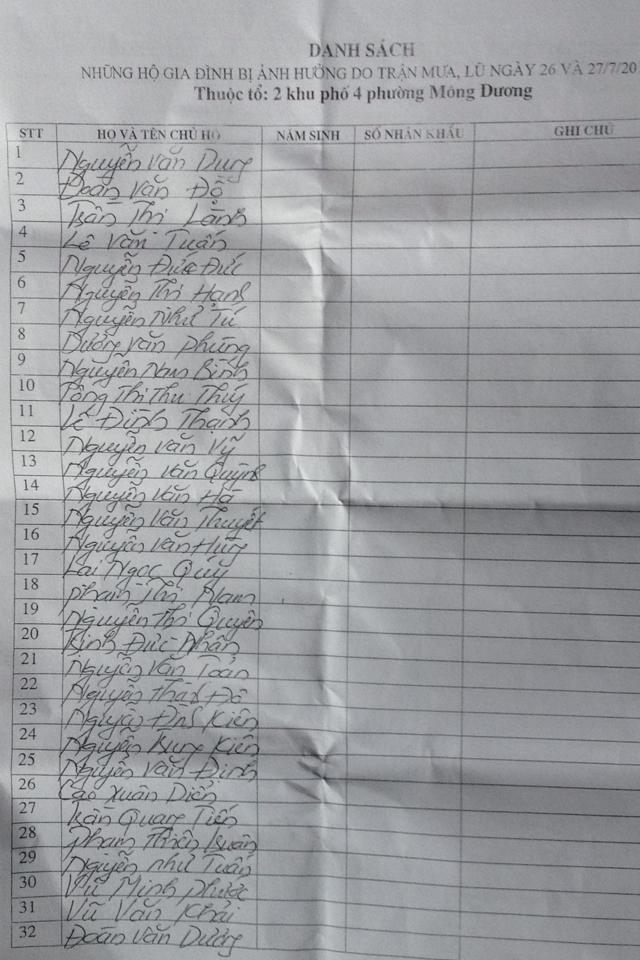 DANH SÁCH
NHỮNG HỘ GIA ĐÌNH BỊ ẢNH HƯỞNG DO TRẬN MƯA, LŨ NGÀY 26 VÀ 27/7/20
Thuộc tổ: 2 khu phố 4 phường Mông Dương
STT HỌ VÀ TÊN CHỦ HỘ NĂM SINH SỐ NHÂN KHẨU GHI CHÚ
1 Nguyễn Văn Dung
2 Đoàn Văn Độ
3 Trần Thị Lành
4 Lê Văn Tuấn
5 Nguyễn Đức Đức
6 Nguyễn Thị Hạnh
7 Nguyễn Như Tú
8 Dương Văn Phùng
9 Nguyễn Nam Bình
10 Tống Thị Thu Thúy
11 Lê Đình Thanh
12 Nguyễn Văn Vỹ
13 Nguyễn Văn Quỳnh
14 Nguyễn Văn Hà
15 Nguyễn Văn Thuyết
16 Nguyễn Văn Hùng
17 Lại Ngọc Quý
18 Phạm Thị Nam
19 Nguyễn Thị Quyên
20 Đức Nhân
21 Nguyễn Văn Toản
22 Nguyễn Đô
23 Nguyễn Đình Kiên
24 Nguyễn Trung Kiên
25 Nguyễn Văn Định
26 Cao Xuân Diễn
27 Trần Quang Tiến
28 Phạm Thiên
29 Nguyễn Như Tuấn
30 Vũ Minh Phước
31 Vũ Văn Khải
32 Đoàn Văn Dương